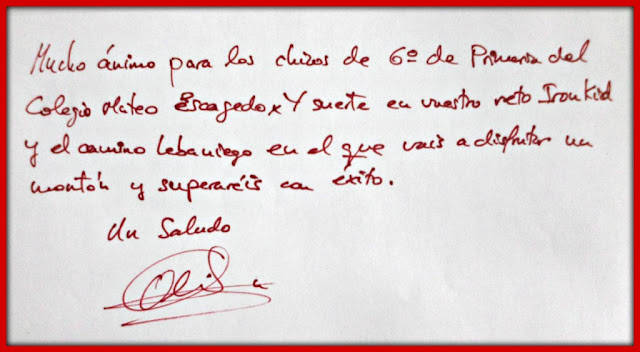 Mucho ánimo para los chicos de 6º de Primaria del
Colegio Mateo Escagedo x Y suerte en vuestro reto IronKid
y el camino Lebaniego en el que vais a disfrutar un
montón y superaréis con éxito.
Un Saludo